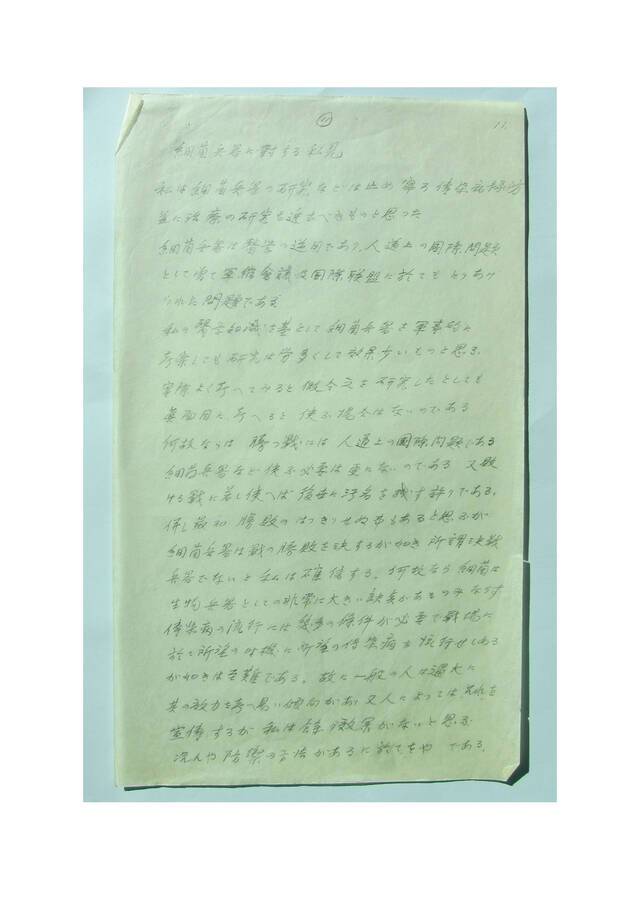 ⑪ 11.
細菌兵器に対する私見
私は細菌兵器の研究などは止め寧ろ伝染病予防
並に治療の研究を進むべきものと思つた
細菌兵器は医学の逆用であり、人道上の国際問題
として嘗て軍縮会議及国際聯盟に於てもとりあげ
られた問題である
私の医学知識を基として細菌兵器を軍事的に
考案しても研究は労多くして効果少いものと思ふ、
実際よく考へてみると仮令之を研究したとしても
真面目に考へると使ふ場合はないのである
何故ならば 勝つ戦には人道上の国際問題である
細菌兵器など使ふ必要は更にないのである 又敗
ける戦に若し使へば後世に汚名を残す許りである、
併し最初勝敗のはつきりせぬ事もあると思ふが
細菌兵器は戦の勝敗を決するが如き所謂決戦
兵器でないと私は確信する、何故なら細菌は
生物兵器としての非常に大きい欠点があるのみならず
伝染病の流行には幾多の條件が必要で戦場に
於て所望の時機に所望の伝染病を流行せしめる
が如きは至難である、故に一般の人は過大に
其の効力を考へ易い傾向があり 又人によつては それを
宣伝するが 私は余り効果がないと思ふ
況んや防禦の方法があるに於てをや である、